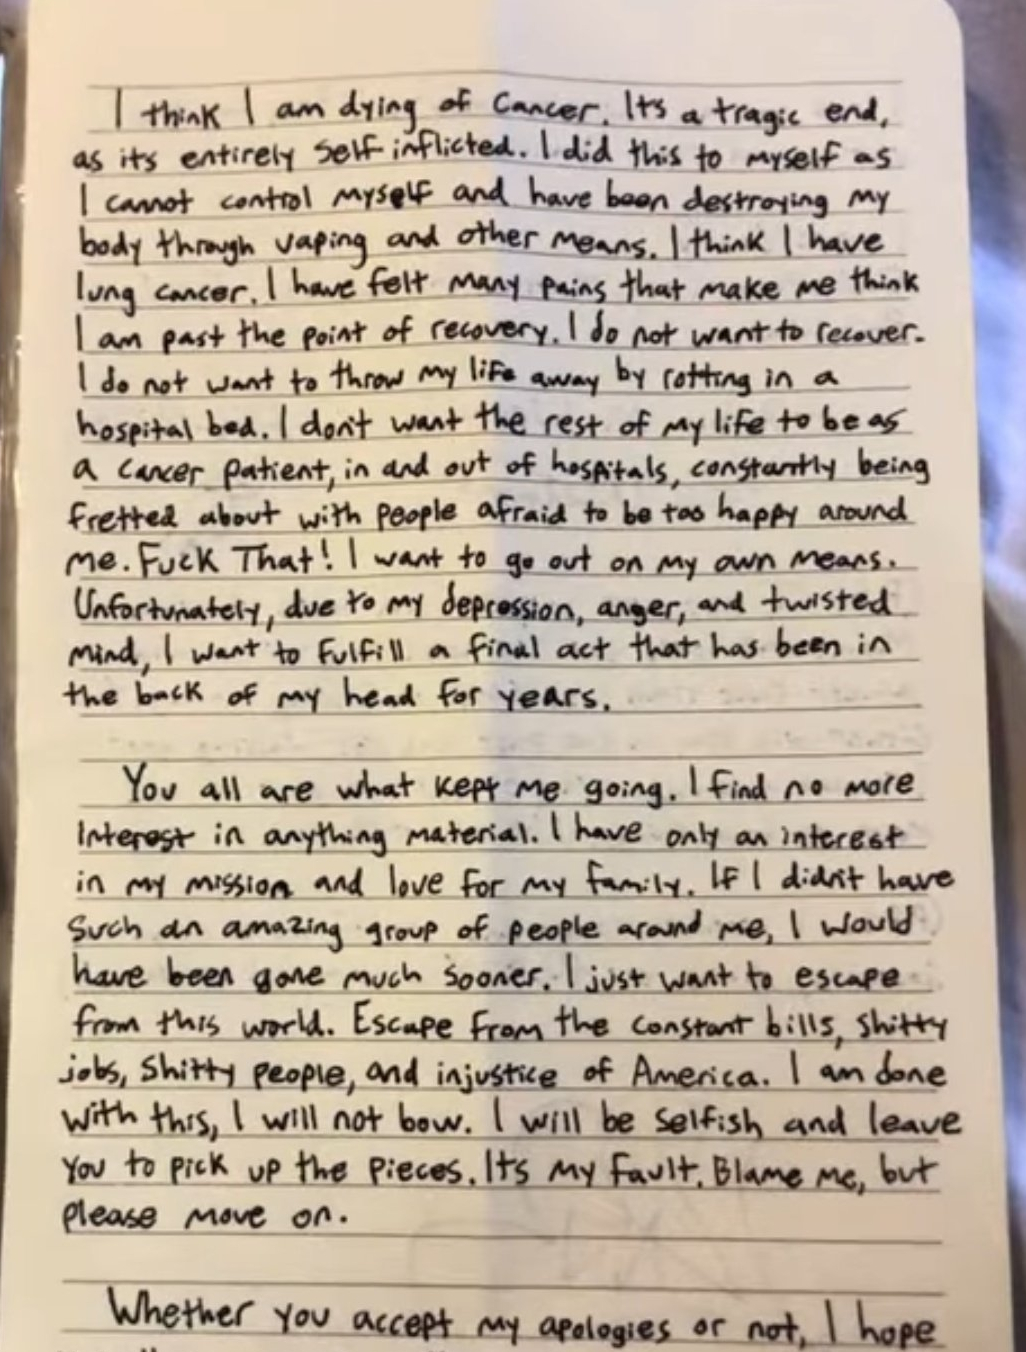 I think I am dying of Cancer. It's a tragic end,
as its entirely self inflicted. I did this to myself as
I cannot control myself and have been destroying my
body through vaping and other means. I think I have
lung cancer. I have felt many pains that make me think
I am past the point of recovery. I do not want to recover.
I do not want to throw my life away by rotting in a
hospital bed. I don't want the rest of my life to be as
a cancer patient, in and out of hospitals, constantly being
fretted about with people afraid to be too happy around
me. Fuck That! I want to go out on my own means.
Unfortunately, due to my depression, anger, and twisted
mind, I want to fulfill a final act that has been in
the back of my head for years.
You all are what kept me going. I find no more
interest in anything material. I have only an interest
in my mission and love for my family. If I didn't have
such an amazing group of people around me, I would
have been gone much sooner. I just want to escape
from this world. Escape from the constant bills, shitty
jobs, shitty people, and injustice of America. I am done
with this, I will not bow. I will be selfish and leave
you to pick up the pieces. It's my fault. Blame me, but
please move on.
Whether you accept my apologies or not, I hope